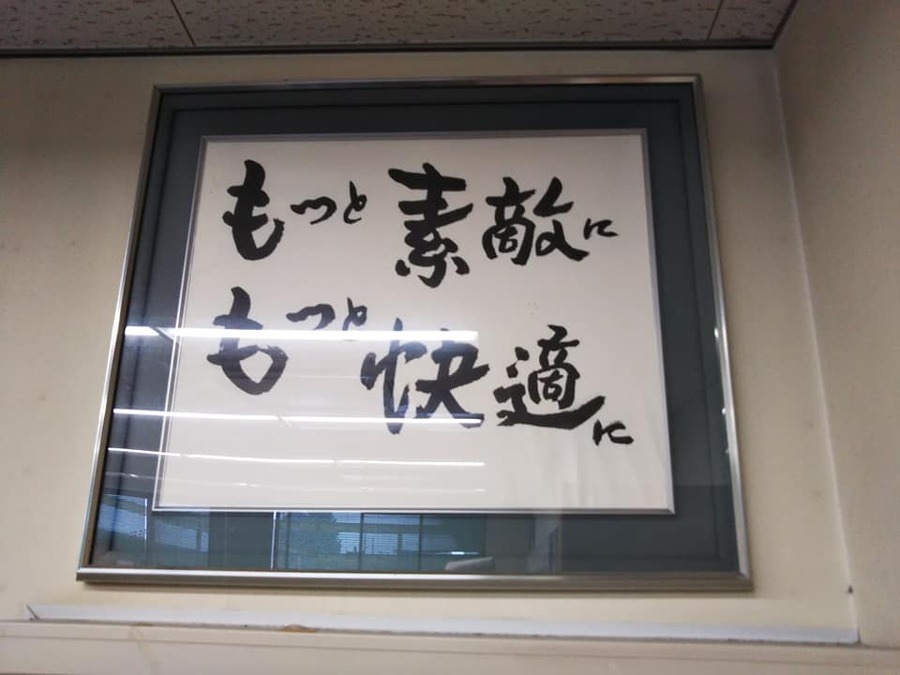 もっと素敵に
もっと快適に